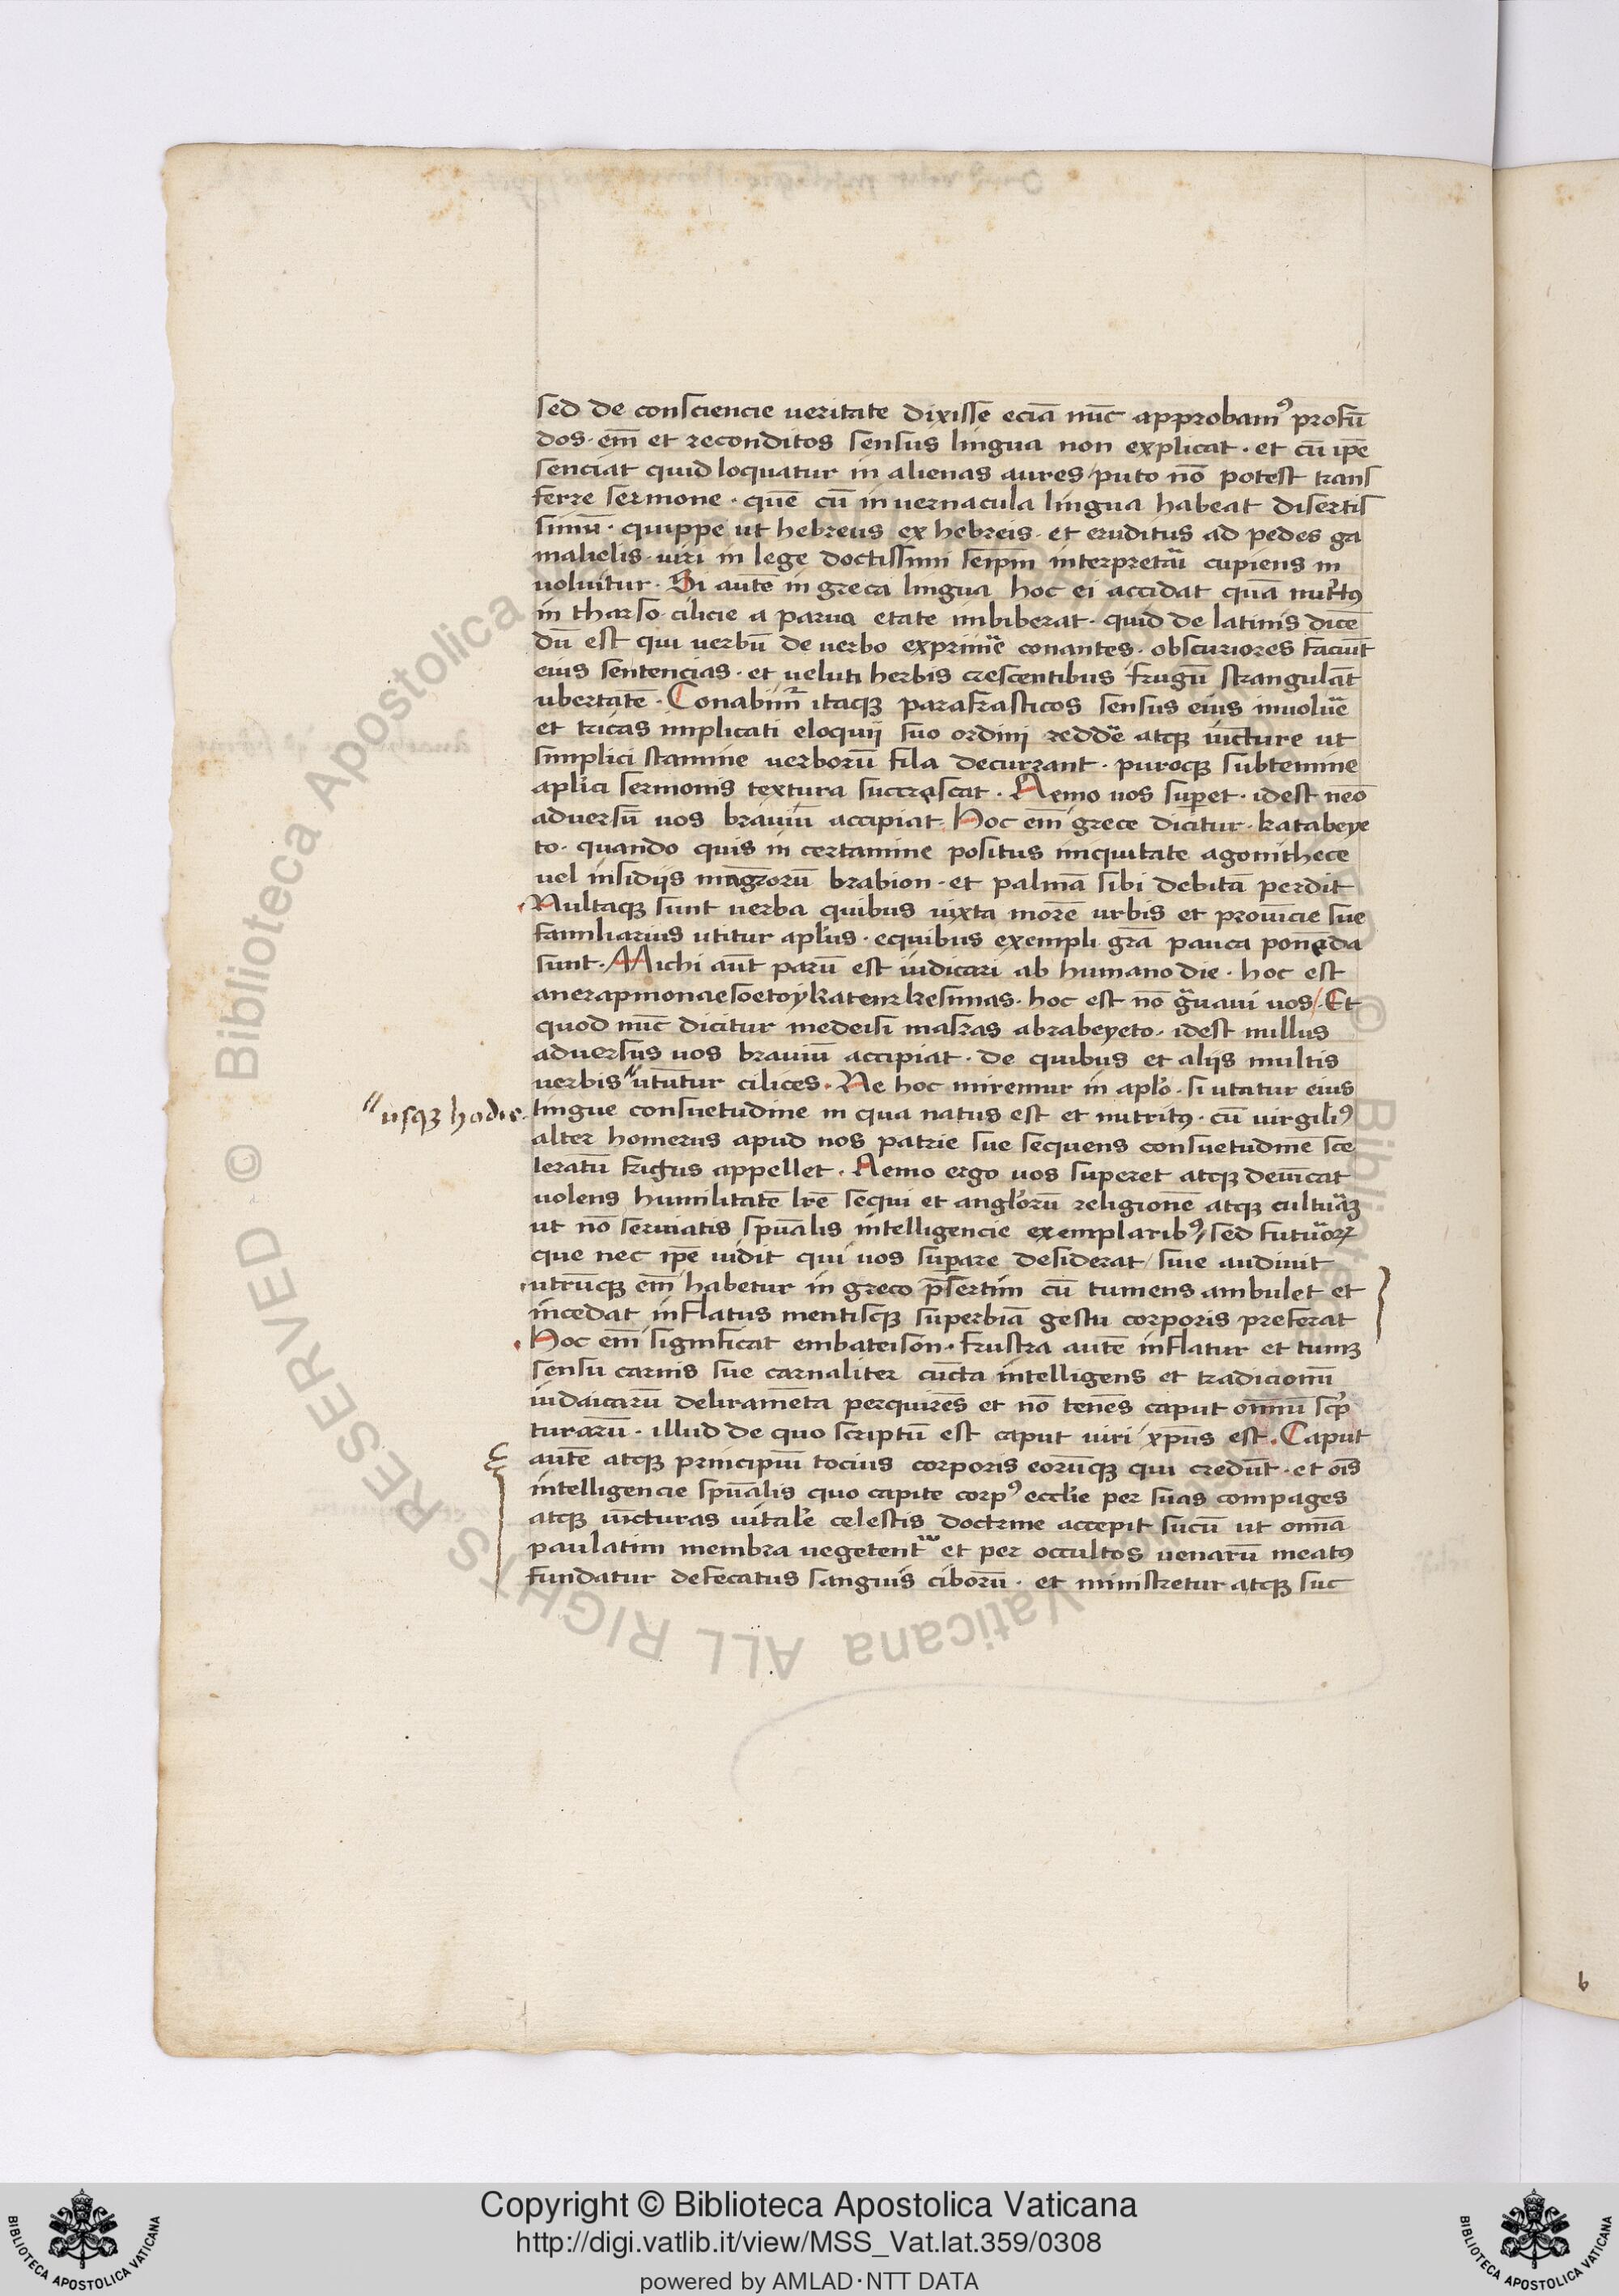 sed de consciencie ueritate dixisse eciā nūc approbam⁹ profū
dos · em̄ et reconditos sensus lingua non explicat · et cū ip̄e
senciat quid loquatur in alienas aures / puto nō potest trans
ferre sermone · quē cū in uernacula lingua habeat disertis
simū · quippe ut hebreus ex hebreis · et eruditus ad pedes ga
malielis · uiri in lege doctissimi seip̄m interpretāi cupiens in
uoluitur · Si autē in greca lingua hoc ei accidat quā nut'tꝰ
in tharso cilicie a parua etate imbiberat · quid de latinis dicē
dū est qui uerbū de uerbo exprim̄e conantes · obscuriores faciūt
eius sentencias · et ueluti herbis crescentibus frugū strangulāt
ubertatē · Conabim̄ itaqꝫ parafrasticos sensus eius inuolūe
et tricas implicati eloquij suo ordini reddē atqꝫ iūcture ut
simplici stamine uerborū fila decurrant · puroqꝫ subtemine
aplici sermonis textura succrescat · Nemo uos suꝑet · idest nēo
aduersū uos brauiū accipiat · Hoc em̄ grece dicitur · katabeye
to · quando quis in certamine positus iniquitate agonithece
uel insidijs magr̄orū brabion · et palmā sibi debitā perdit
Multaqꝫ sunt uerba quibus iuxta morē urbis et prouīcie sue
familiarius utitur apl̄us · equibus exempli gr̄a pauca ponēda
sunt · Michi aūt parū est iudicari ab humano die · hoc est
anerapmonaesoetoykatenrkesimas · hoc est nō g̃uaui uos / · Et
quod nūc dicitur medeisi masras abrabeyeto · idest nullus
aduersus uos brauiū accipiat · de quibus et alijs multis
uerbis " utūtur cilices · Ne hoc miremur in apl̄o · si utatur eius
"usqꝫ hodie ·
lingue consuetudine in qua natus est et nutritꝰ · cū uirgili⁹
alter homerus apud nos patrie sue sequens consuetudinē sce
leratū frigus appellet · Nemo ergo uos superet atqꝫ deuīcat
uolens humilitatē lr̄e sequi et angl̄orū religionē atqꝫ cultuāꝫ
ut nō seruiatis sp̄ualis intelligencie exemplarib⁹ / sed futuorꝝ
que nec ip̄e uidit qui uos suꝑare desiderat / siue audiuit
utrūqꝫ em̄ habetur in greco p̄sertim cū tumens ambulet et
incedat inflatus mentisqꝫ superbiā gestu corporis preferat
Hoc em̄ significat embateison · frustra autē inflatur et tumꝫ
sensu carnis sue carnaliter cūcta intelligens et tradicionū
iudaicarū deliramēta perquirēs et nō tenēs caput omniū sc̄p
turarū · illud de quo scriptū est caput uiri xp̄us est · Caput
autē atqꝫ principiū tocius corporis eorūqꝫ qui credūt · et oīs
intelligencie sp̄ualis quo capite corp⁹ eccl̄ie per suas compages
atqꝫ iūcturas uital̄e celestis doctrine accepit sucū ut omīa
paulatim membra uegetent̃ et per occultos uenarū meatꝰ
fundatur defecatus sanguis ciborū · et ministretur atqꝫ suc
b
Copyright © Biblioteca Apostolica Vaticana
http://digi.vatlib.it/view/MSS_Vat.lat.359/0308
powered by AMLAD·NTT DATA
BIBLIOTECA APOSTOLICA VATICANA
BIBLIOTECA APOSTOLICA VATICANA
© Biblioteca Apostolica Vaticana ALL RIGHTS RESERVED